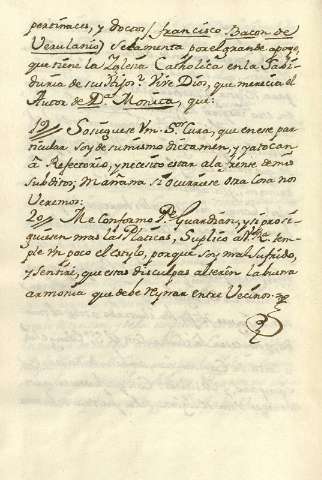 pertinaces, y doctos (francisco Bacon de
Verulanio) Se lamenta por el grande apoyo,
que tiene la Iglesia Catholica en la Sabi-
duria de sus Hijos. Vive Dios, que merecia el
Autor de D.ª Monica, que:
19// Sosieguese Vm. S.or Cura, que en ese par-
ticular soy de su mismo dictamen, y ya tocan
a Refectorio, y necesito estar a la frente de mis
Subditos; Mañana si ocurriese otra Cosa nos
Veremos:
20// Me Conformo P.e Guardian, y si prosi-
guiesen mas las Platicas, Suplico a V. R. tem-
ple un poco el estylo, porque soy mal Sufrido,
y Sentiré, que estas disculpas alteren la buena
armonia que debe Reynar entre Vecinos.